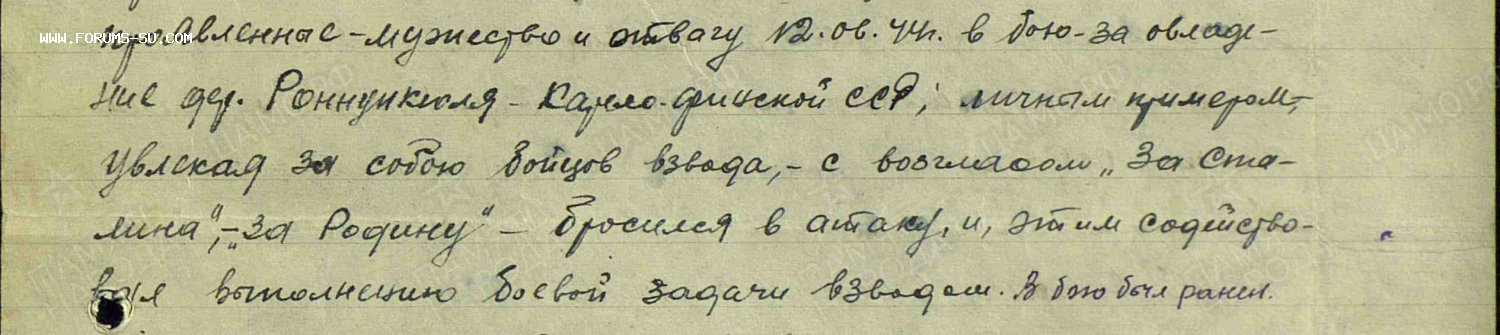 WWW.FORUMS-SU.COM
проявленные - мужество и отвагу 12.06.44г. в бою - за овладе-
ние дер. Роннункюля - Карело-финской ССР; личным примером,-
увлекая за собою бойцов взвода,- с возгласом „За Ста-
лина“,- „за Родину“ - бросился в атаку, и, этим содейство-
вал выполнению боевой задачи взводом. В бою был ранен.